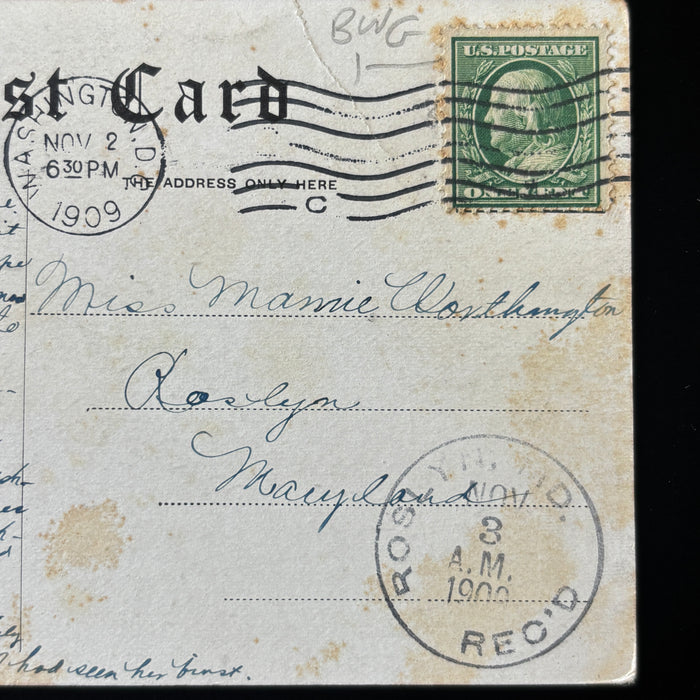 BWG
1—
U.S. POSTAGE
ONE CENT
st Card
WASHINGTON, D.C.
NOV 2
6 30 PM
1909
THE ADDRESS ONLY HERE
C
Miss Mamie Worthington
Roslyn
Maryland
ROSLYN, MD.
NOV
3
A.M.
1909
REC'D
had seen her bust.